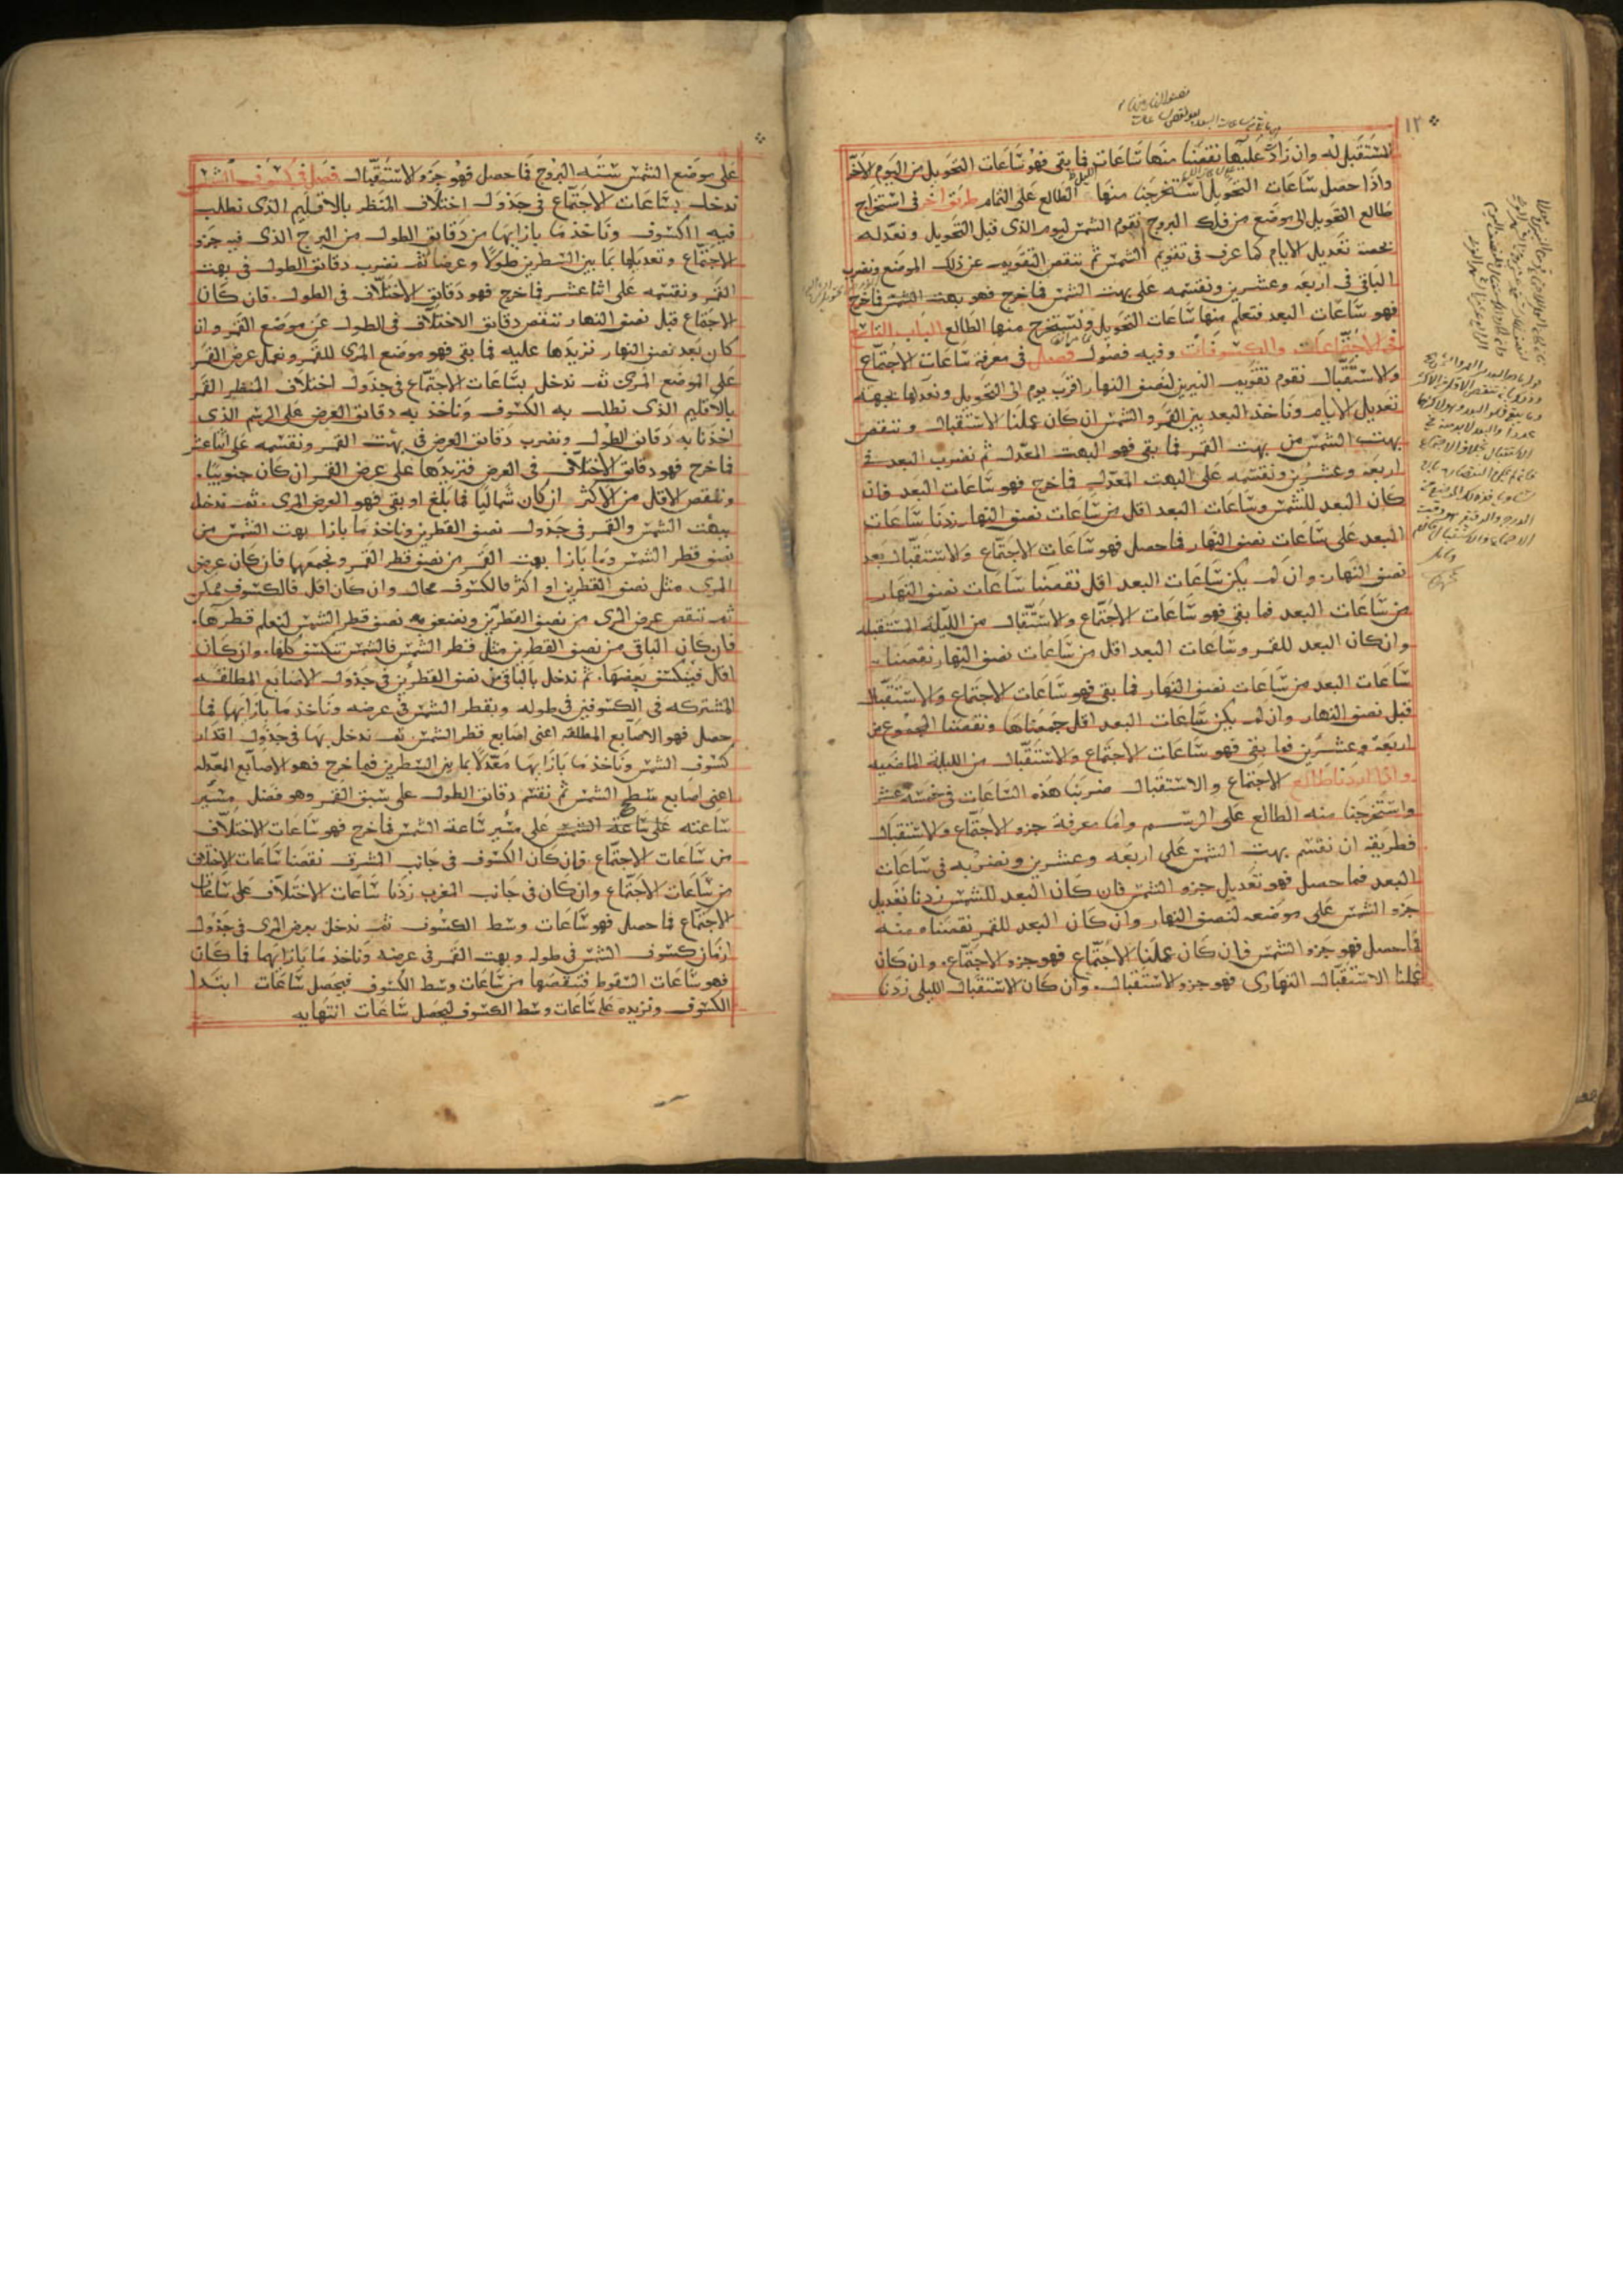 ١٢
المستقبل له وان زاد عليها نقصنا منها ساعات فما بقى فهو ساعات التحويل من اليوم الآخر
واذا حصل ساعات التحويل استخرجنا منها الطالع على التمام طريق اخر فى استخراج
طالع التحويل الى موضع من فلك البروج نقوم الشمس ليوم الذى قبل التحويل ونعدله
بحصة تعديل الايام كما عرف فى تقويم الشمس ثم ننقص التقويم عن ذلك الموضع ونضرب
الباقى فى اربعة وعشرين ونقسمه على بهت الشمس فما خرج فهو بهت الشمس فما خرج
فهو ساعات البعد فتعلم منها ساعات التحويل ونستخرج منها الطالع الباب التاسع
فى الاجتماعات والكسوفات وفيه فصول فصل فى معرفة ساعات الاجتماع
والاستقبال نقوم تقويم النيرين لنصف النهار اقرب يوم الى التحويل ونعدلها بجهة
تعديل الايام ونأخذ البعد بين القمر والشمس ان كان عملنا الاستقبال وننقص
بهت الشمس من بهت القمر فما بقى فهو البهت المعدل ثم نضرب البعد فى
اربعة وعشرين ونقسمه على البهت المعدل فما خرج فهو ساعات البعد فان
كان البعد للشمس وساعات البعد اقل من ساعات نصف النهار زدنا ساعات
البعد على ساعات نصف النهار فما حصل فهو ساعات الاجتماع والاستقبال بعد
نصف النهار وان لم يكن ساعات البعد اقل نقصنا ساعات نصف النهار
من ساعات البعد فما بقى فهو ساعات الاجتماع والاستقبال من الليلة المستقبلة
وان كان البعد للقمر وساعات البعد اقل من ساعات نصف النهار نقصنا
ساعات البعد من ساعات نصف النهار فما بقى فهو ساعات الاجتماع والاستقبال
قبل نصف النهار وان لم يكن ساعات البعد اقل جمعناها ونقصنا المجموع من
اربعة وعشرين فما بقى فهو ساعات الاجتماع والاستقبال من الليلة الماضية
واذا اردنا طالع الاجتماع والاستقبال ضربنا هذه الساعات فى خمسة عشر
واستخرجنا منه الطالع على الرسم واما معرفة جزو الاجتماع والاستقبال
فطريقه ان نقسم بهت الشمس على اربعة وعشرين ونضربه فى ساعات
البعد فما حصل فهو تعديل جزو الشمس فان كان البعد للشمس زدنا تعديل
جزو الشمس على موضعه لنصف النهار وان كان البعد للقمر نقصناه منه
فما حصل فهو جزو الشمس فان كان عملنا الاجتماع فهو جزو الاجتماع وان كان
عملنا الاستقبال النهارى فهو جزو الاستقبال وان كان الاستقبال الليلى زدنا
على موضع الشمس ستة البروج فما حصل فهو جزو الاستقبال فصل فى كسوف الشمس
ندخل بساعات الاجتماع فى جدول اختلاف المنظر بالاقليم الذى نطلب
فيه الكسوف ونأخذ ما بازايها من دقايق الطول من البرج الذى فيه جزو
الاجتماع وتعديلها بما بين السطرين طولا وعرضا ثم نضرب دقايق الطول فى بهت
القمر ونقسمه على اثنا عشر فما خرج فهو دقايق الاختلاف فى الطول فان كان
الاجتماع قبل نصف النهار ننقص دقايق الاختلاف فى الطول عن موضع القمر وان
كان بعد نصف النهار نزيدها عليه فما بقى فهو موضع المرى للقمر ونعمل عرض القمر
على الموضع المرى ثم ندخل بساعات الاجتماع فى جدول اختلاف المنظر القمر
بالاقليم الذى نطلب به الكسوف ونأخذ به دقايق العرض على الرسم الذى
اخذنا به دقايق الطول ونضرب دقايق العرض فى بهت القمر ونقسمه على اثنا عشر
فما خرج فهو دقايق الاختلاف فى العرض فنزيدها على عرض القمر ان كان جنوبيا
وننقص الاقل من الاكثر ان كان شماليا فما بلغ او بقى فهو العرض المرى ثم ندخل
ببهت الشمس والقمر فى جدول نصف القطرين ونأخذ ما بازا بهت الشمس من
نصف قطر الشمس وما بازا بهت القمر من نصف قطر القمر ونجمعهما فان كان عرض
المرى مثل نصف القطرين او اكثر فالكسوف محال وان كان اقل فالكسوف ممكن
ثم ننقص عرض المرى من نصف القطرين ونضعف نصف قطر الشمس لنعلم قطرها
فان كان الباقى من نصف القطرين مثل قطر الشمس فالشمس تنكسف كلها وان كان
اقل فينكسف بعضها ثم ندخل بالباقى من نصف القطرين فى جدول الاصابع المطلقة
المشتركة فى الكسوفين فى طوله وبقطر الشمس فى عرضه ونأخذ ما بازايهما فما
حصل فهو الاصابع المطلقة اعنى اصابع قطر الشمس ثم ندخل بها فى جدول اقدار
كسوف الشمس ونأخذ ما بازايها معدلا بما بين السطرين فما خرج فهو الاصابع المعدلة
اعنى اصابع سطح الشمس ثم نقسم دقايق الطول على سبق القمر وهو فضل مسير
ساعته على ساعة الشمس على مسير ساعة الشمس فما خرج فهو ساعات الاختلاف
من ساعات الاجتماع فان كان الكسوف فى جانب الشرق نقصنا ساعات الاختلاف
من ساعات الاجتماع وان كان فى جانب المغرب زدنا ساعات الاختلاف على ساعات
الاجتماع فما حصل فهو ساعات وسط الكسوف ثم ندخل بعرض المرى فى جدول
ازمان كسوف الشمس فى طوله وبهت القمر فى عرضه ونأخذ ما بازايهما فما كان
فهو ساعات السقوط فننقصها من ساعات وسط الكسوف فيحصل ساعات ابتدا
الكسوف ونزيده على ساعات وسط الكسوف ليحصل ساعات انتهايه